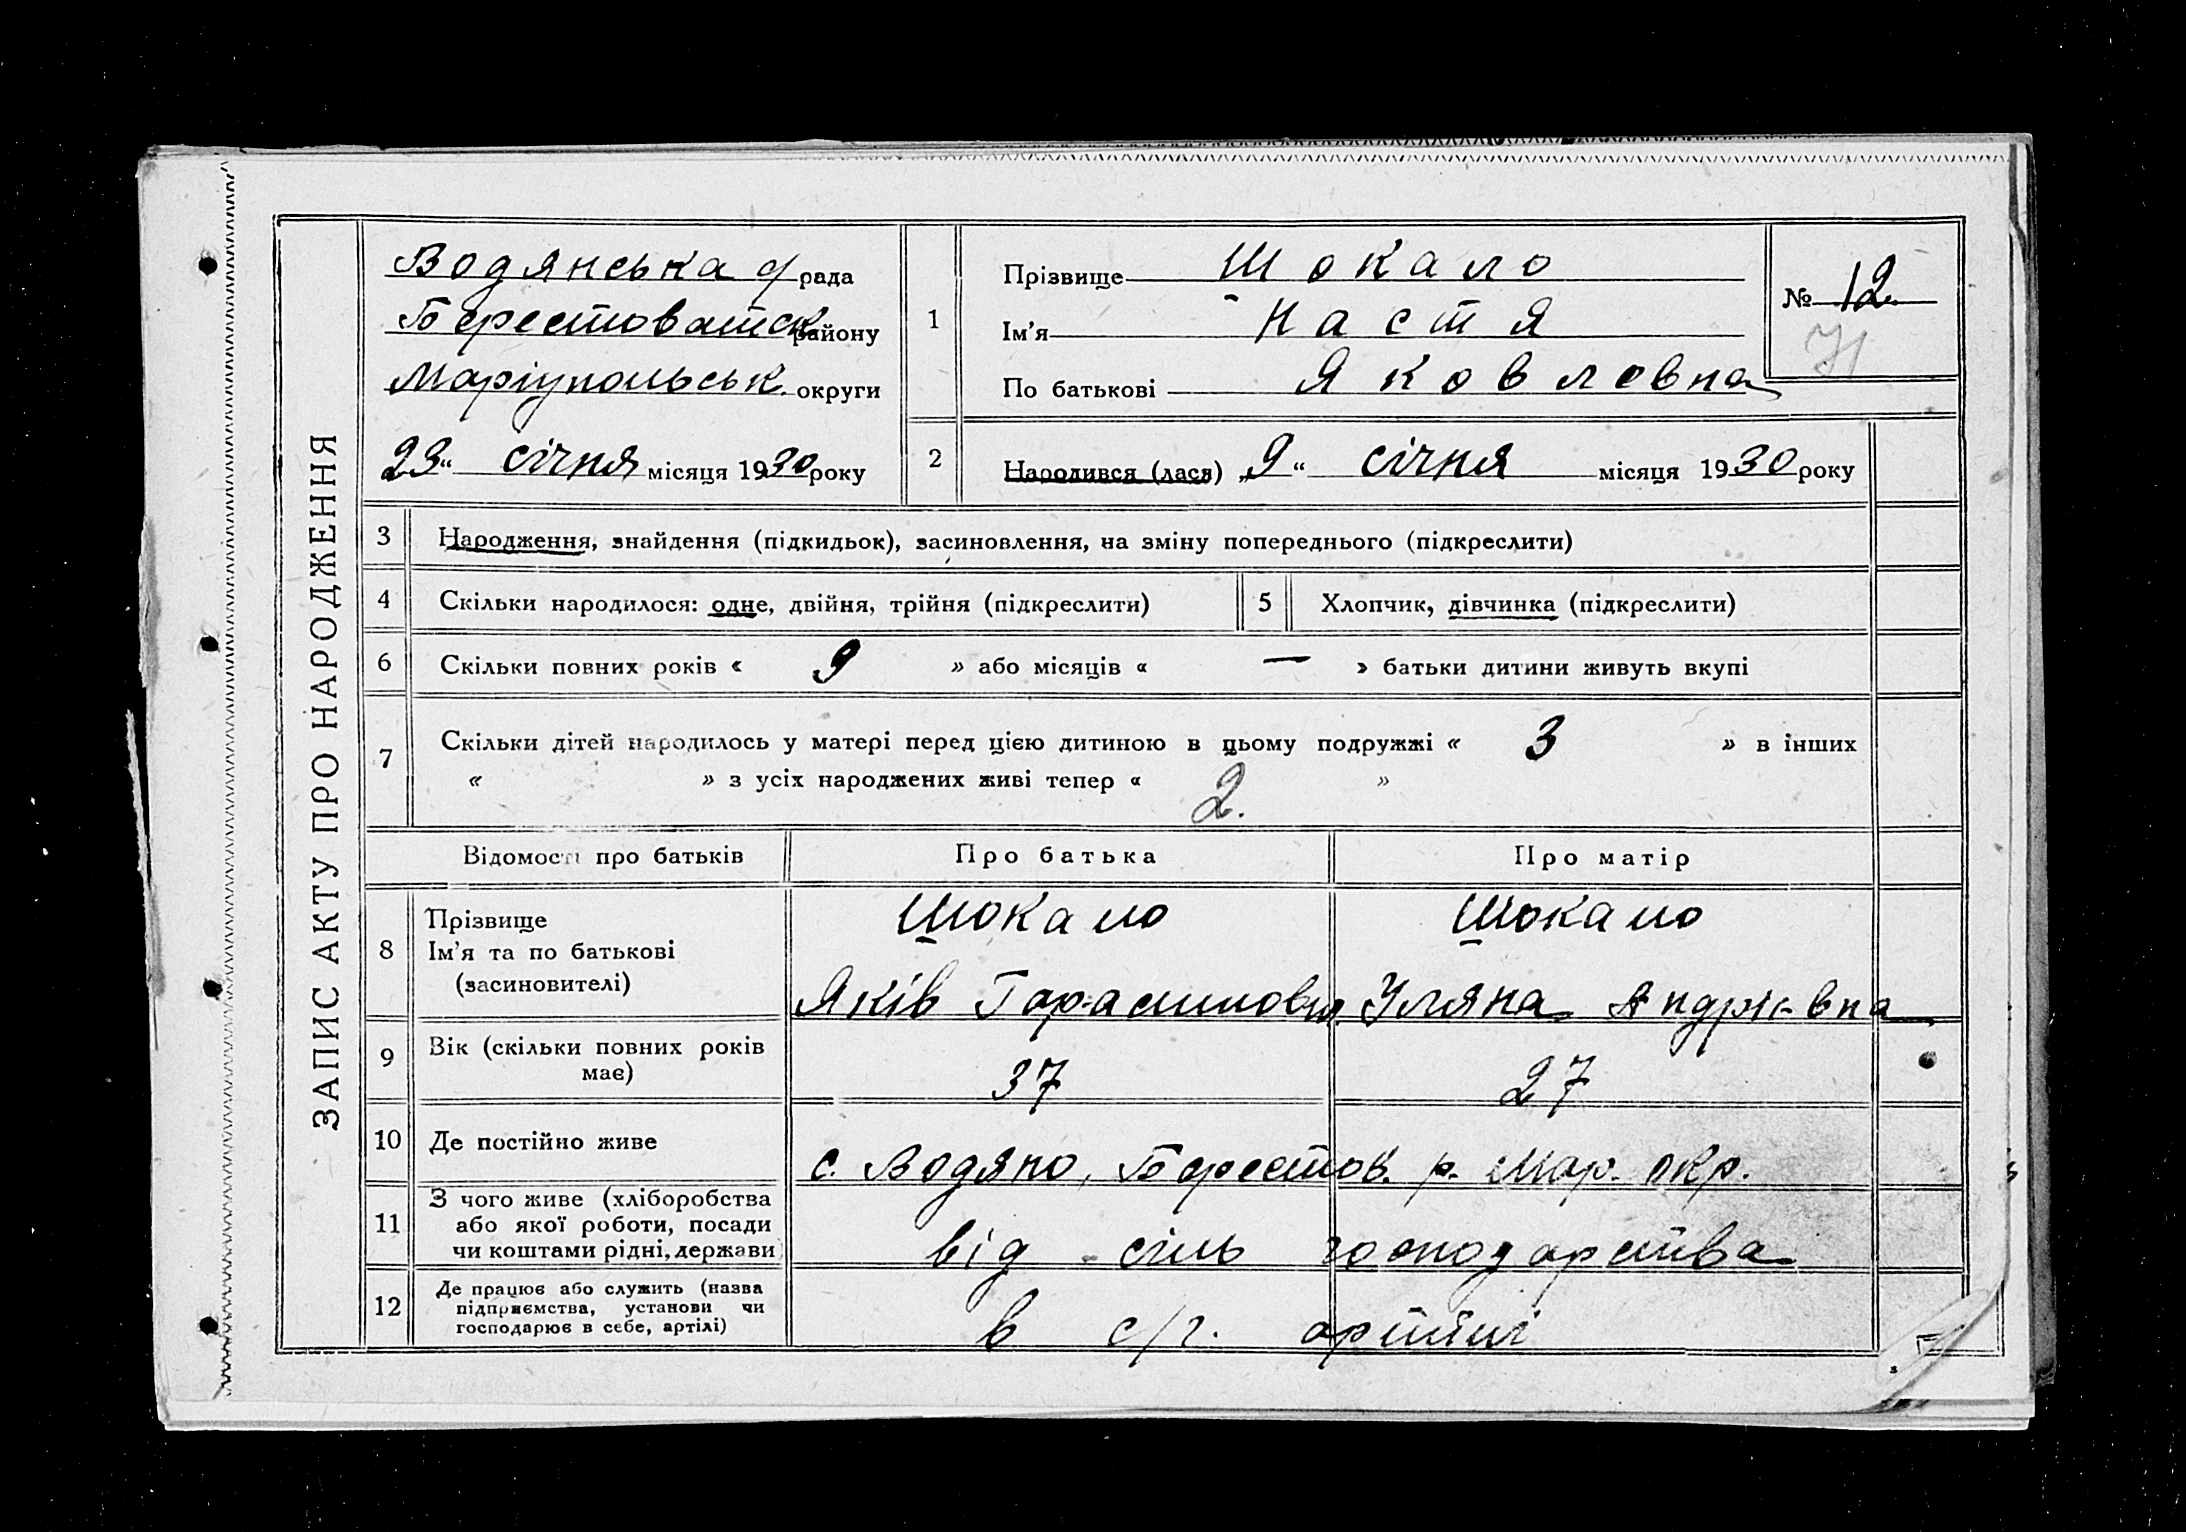 ЗАПИС АКТУ ПРО НАРОДЖЕННЯ
Водянська с/рада
Берестоватск району
Маріупольськ. округи
23 “ січня місяця 1930 року
1
Прізвище Шокало
Ім’я Настя
По батькові Яковлевна
№ 12
2
Народився (лася) „ 9 “ січня місяця 1930 року
3 Народження, знайдення (підкидьок), засиновлення, на зміну попереднього (підкреслити)
4 Скільки народилося: одне, двійня, трійня (підкреслити) 5 Хлопчик, дівчинка (підкреслити)
6 Скільки повних років « 9 » або місяців « — » батьки дитини живуть вкупі
7 Скільки дітей народилось у матері перед цією дитиною в цьому подружжі « 3 » в інших
« » з усіх народжених живі тепер « 2. »
Відомості про батьків Про батька Про матір
8 Прізвище Шокало Шокало
Ім’я та по батькові
(засиновителі) Яків Гарасимович Уляна Андріевна
9 Вік (скільки повних років
має) 37 27
10 Де постійно живе с. Водяно, Берестов. р. Мар. окр.
11 З чого живе (хліборобства
або якої роботи, посади
чи коштами рідні, держави) від сіль господарства
12 Де працює або служить (назва
підприємства, установи чи
господарює в себе, артілі) в с/г. артілі